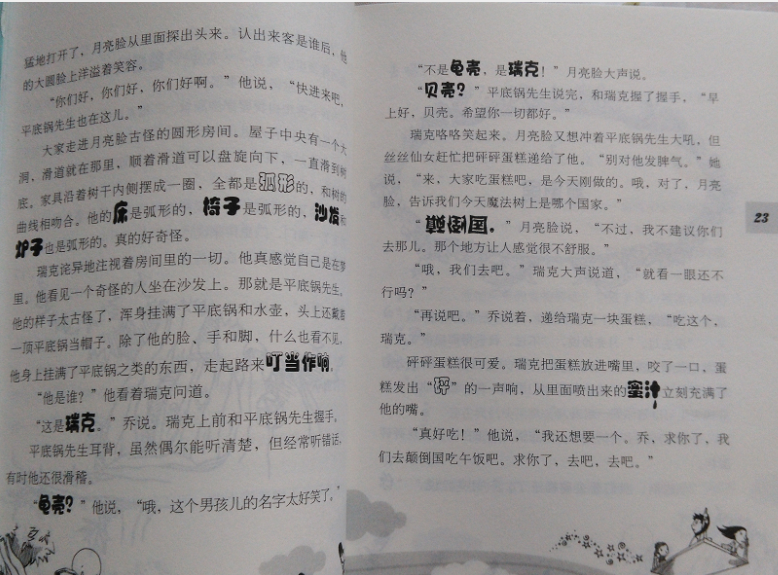 猛地打开了，月亮脸从里面探出头来。认出来客是谁后，他
的大圆脸上洋溢着笑容。
“你们好，你们好，你们好啊。”他说，“快进来吧，
平底锅先生也在这儿。”
大家走进月亮脸古怪的圆形房间。屋子中央有一个大
洞，滑道就在那里，顺着滑道可以盘旋向下，一直滑到树
底。家具沿着树干内侧摆成一圈，全都是弧形的，和树的
曲线相吻合。他的床是弧形的，椅子是弧形的，沙发和
炉子也是弧形的。真的好奇怪。
瑞克诧异地注视着房间里的一切。他真感觉自己是在梦
里。他看见一个奇怪的人坐在沙发上。那就是平底锅先生。
他的样子太古怪了，浑身挂满了平底锅和水壶，头上还戴着
一顶平底锅当帽子。除了他的脸、手和脚，什么也看不见。
他身上挂满了平底锅之类的东西，走起路来叮当作响。
“他是谁？”他看着瑞克问道。
“这是瑞克。”乔说。瑞克上前和平底锅先生握手。
平底锅先生耳背，虽然偶尔能听清楚，但经常听错话。
有时他还很滑稽。
“龟壳？”他说，“哦，这个男孩儿的名字太好笑了。”
“不是龟壳，是瑞克！”月亮脸大声说。
“贝壳？”平底锅先生说完，和瑞克握了握手，“早
上好，贝壳。希望你一切都好。”
瑞克咯咯笑起来。月亮脸又想冲着平底锅先生大吼，但
丝丝仙女赶忙把砰砰蛋糕递给了他。“别对他发脾气。”她
说，“来，大家吃蛋糕吧，是今天刚做的。哦，对了，月亮
脸，告诉我们今天魔法树上是哪个国家。”
“颠倒国。”月亮脸说，“不过，我不建议你们
去那儿。那个地方让人感觉很不舒服。”
“哦，我们去吧。”瑞克大声说道，“就看一眼还不
行吗？”
“再说吧。”乔说着，递给瑞克一块蛋糕，“吃这个，
瑞克。”
砰砰蛋糕很可爱。瑞克把蛋糕放进嘴里，咬了一口，蛋
糕发出“砰”的一声响，从里面喷出来的蜜汁立刻充满了
他的嘴。
“真好吃！”他说，“我还想要一个。乔，求你了，我
们去颠倒国吃午饭吧。求你了，去吧，去吧。”
23